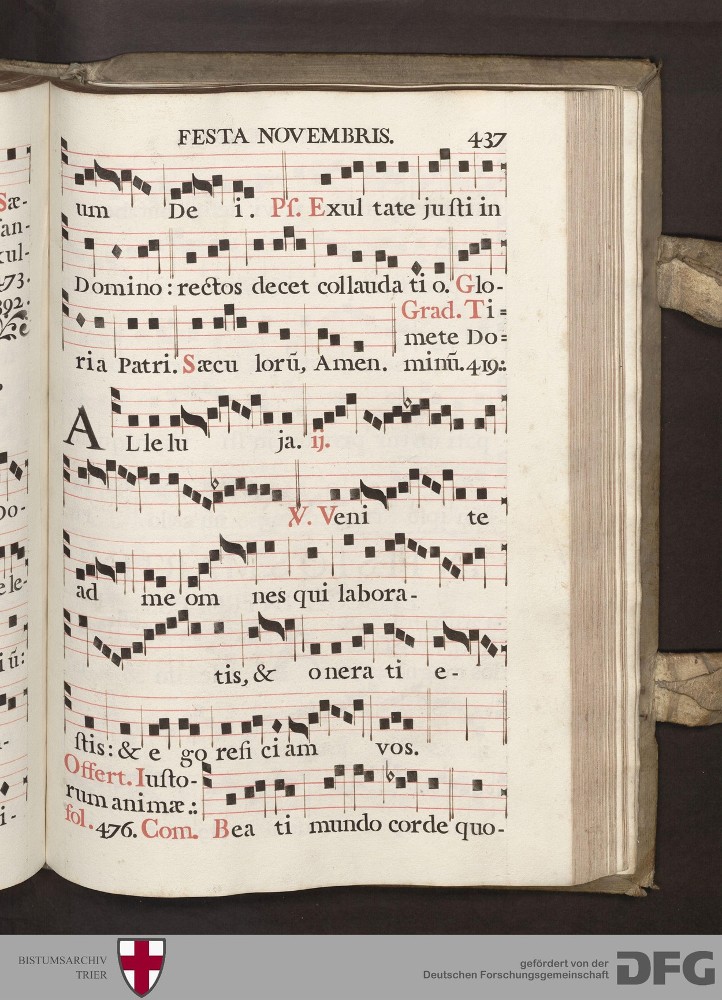 FESTA NOVEMBRIS. 437
um De i. Pſ. Exul tate ju ſti in
Sæ-
Domino: rectos decet collauda ti o. Glo-
473.
392.
Grad. Ti=
mete Do=
ria Patri. Sæcu lorũ, Amen. minũ. 419.:
ALle lu ja. ij.
℣. Veni te
ad me om nes qui labora-
ele-
tis, & onera ti e-
iũ:
ſtis: & e go refi ci am vos.
Offert. Iuſto-
rum animæ.:
fol. 476. Com. Bea ti mundo corde quo-
i-
BISTUMSARCHIV
TRIER
gefördert von der
Deutschen Forschungsgemeinschaft
DFG